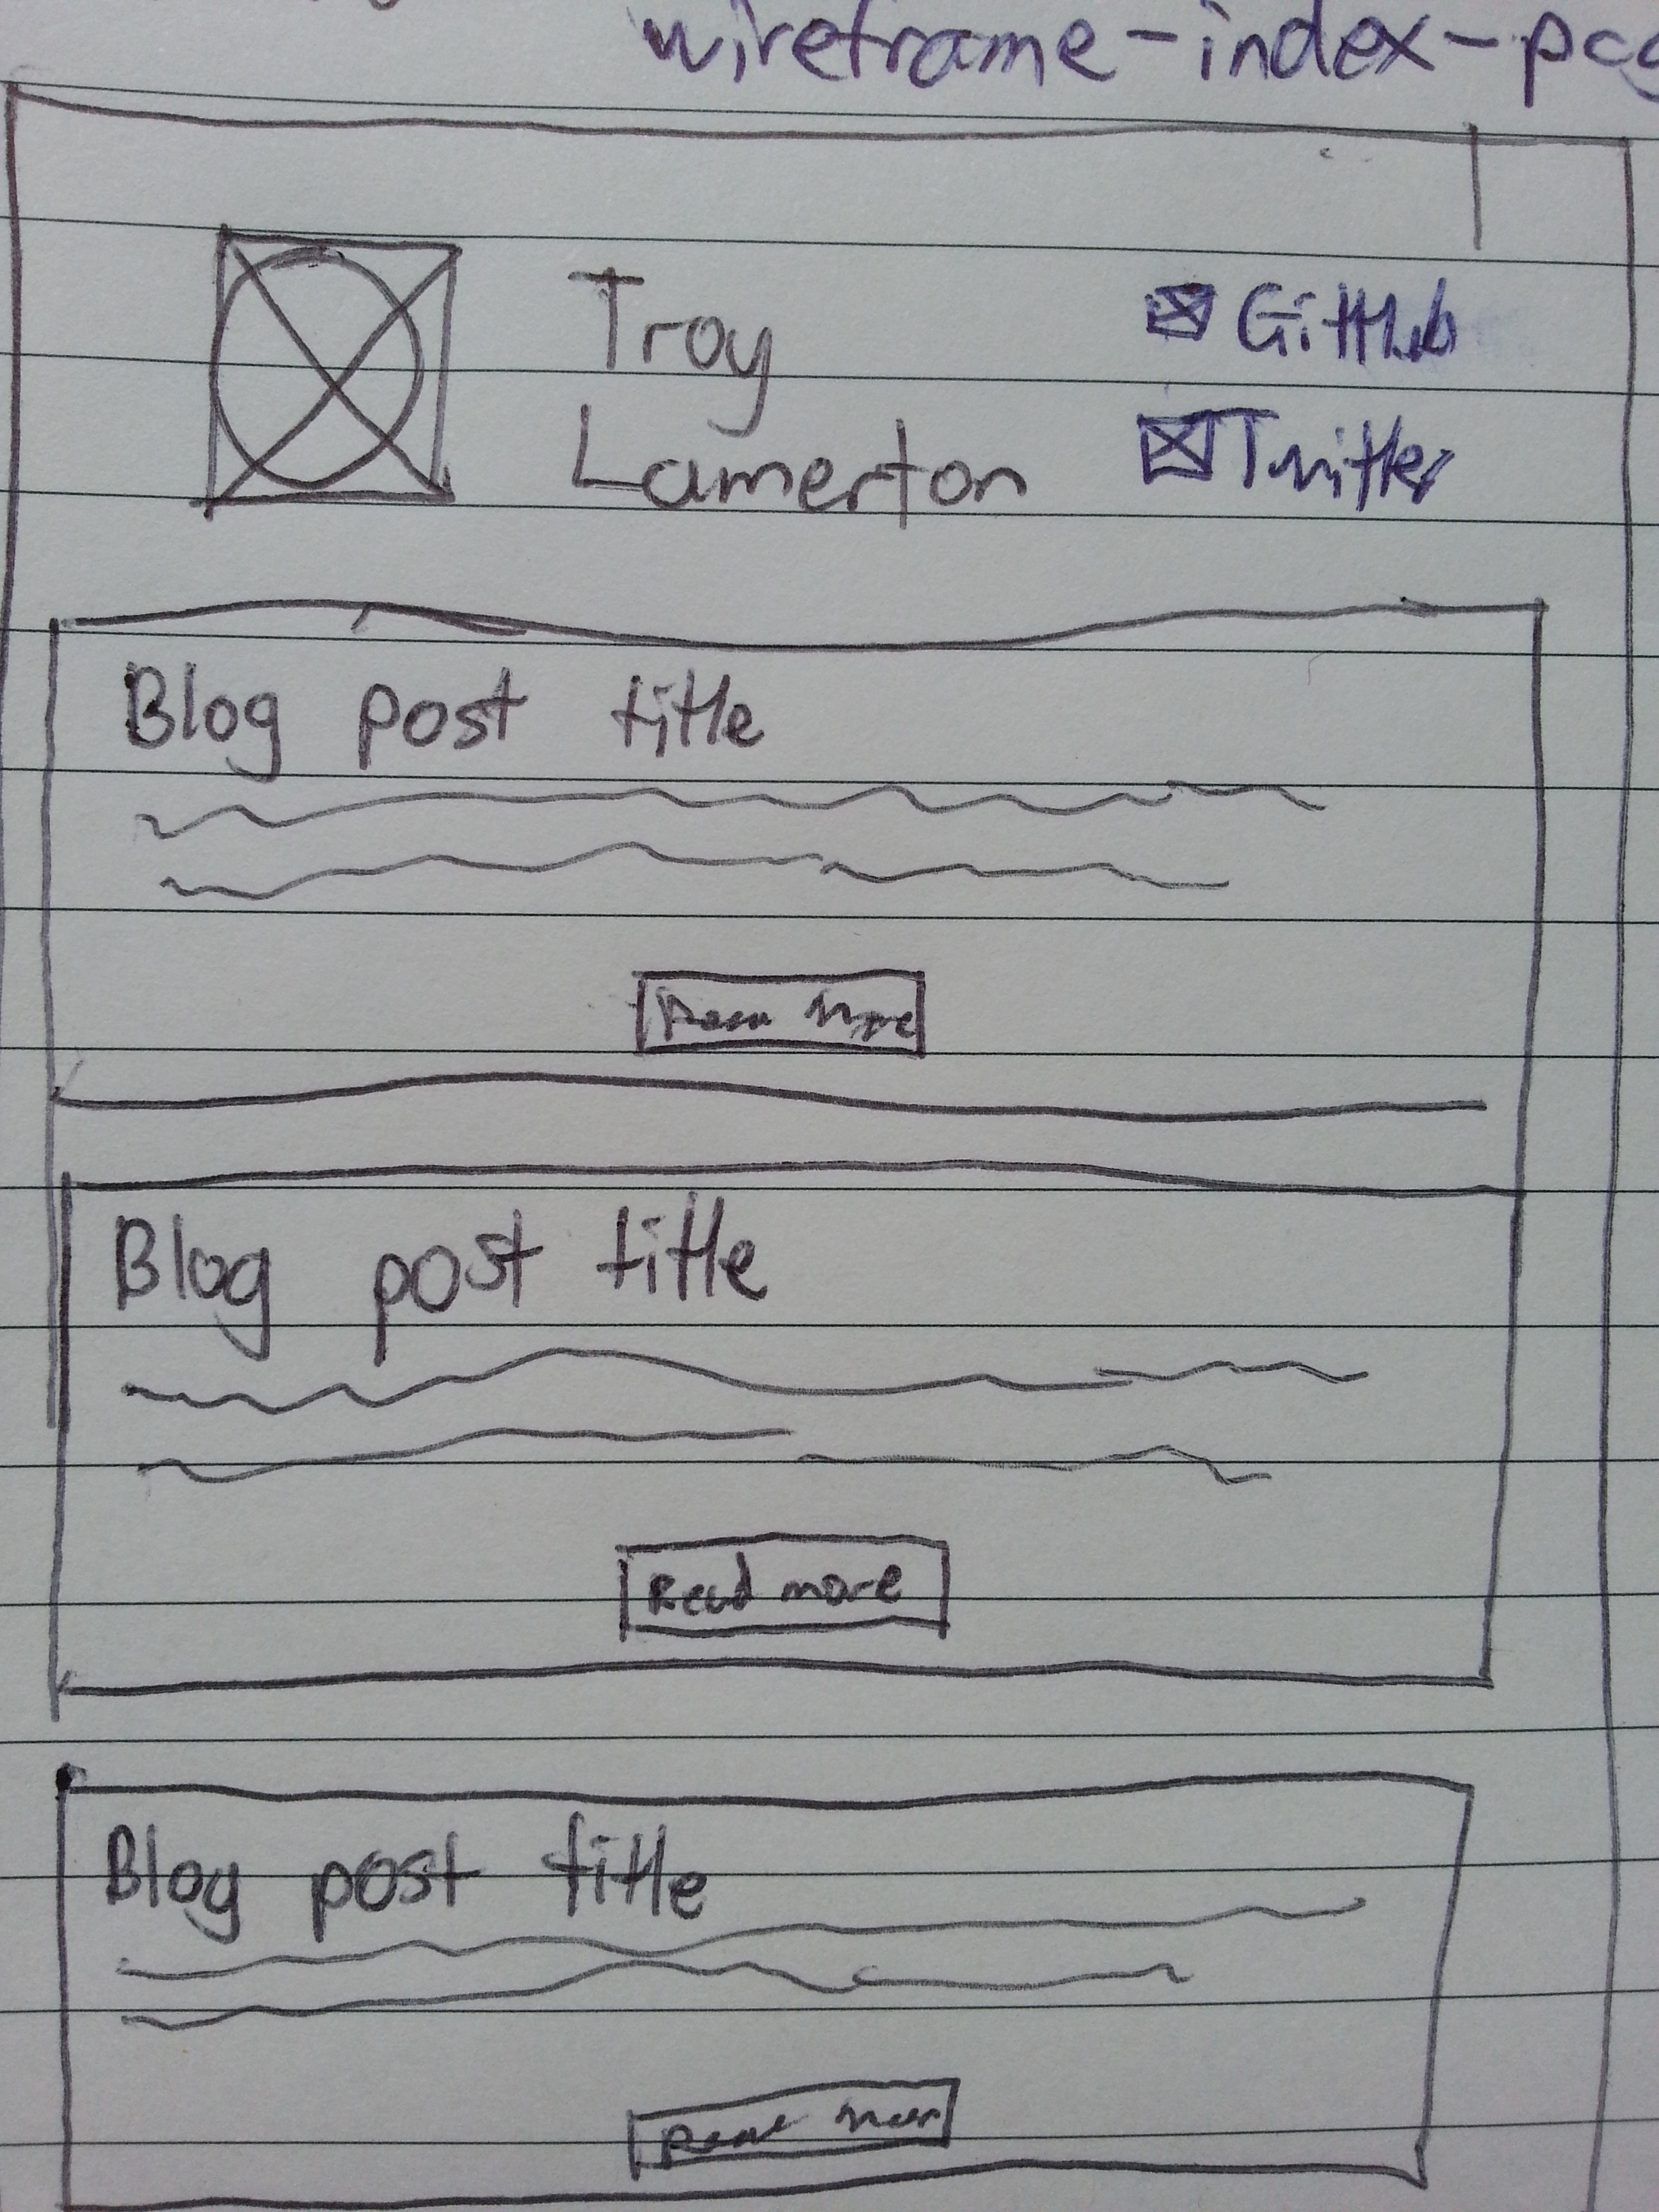 wireframe-index-pag
Troy
Lamerton
GitHub
Twitter
Blog post title
Read More
Blog post title
Read more
Blog post title
Read More